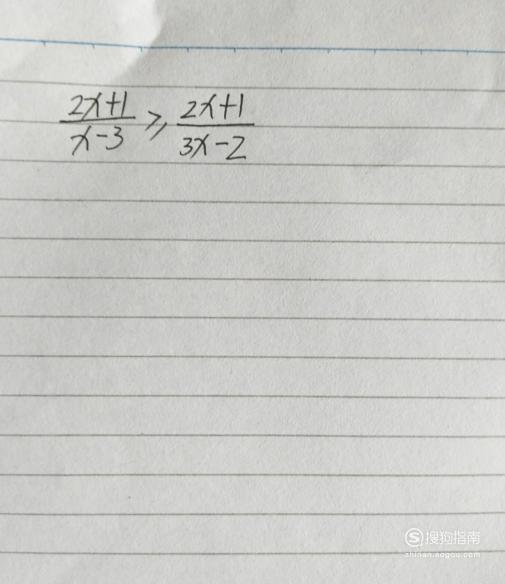 2x+1/x-3 ≥ 2x+1/3x-2
搜狗指南
zhinan.sogou.com